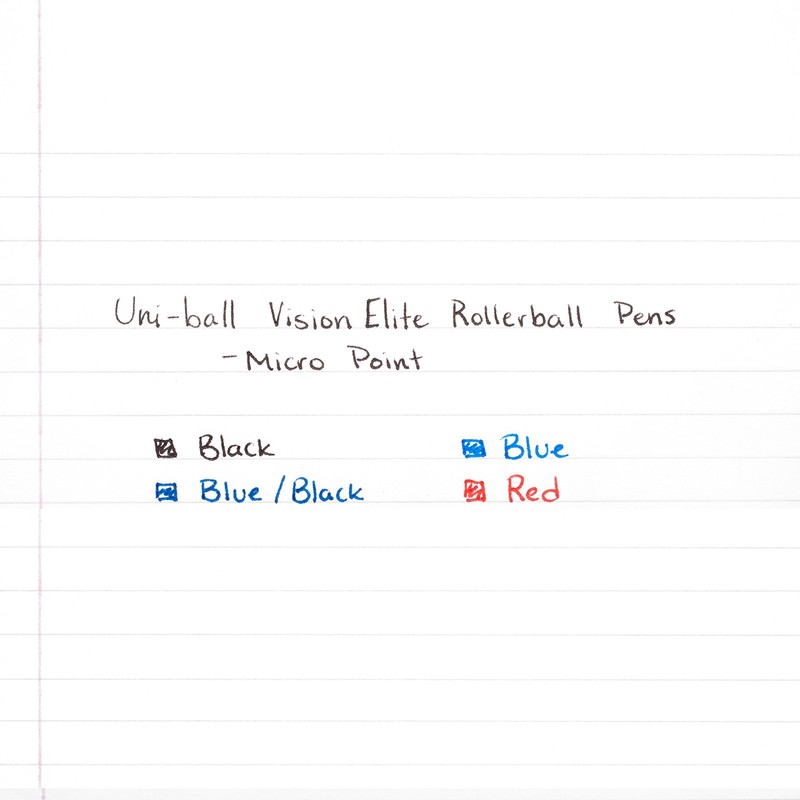 Uni-ball Vision Elite Rollerball Pens
- Micro Point
Black Blue
Blue / Black Red